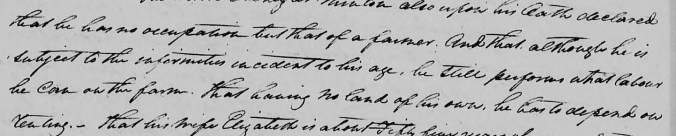 also upon his Oath declared
that he has no occupation but that of a farmer. And that although he is
subject to the infermities incedent to his age, he still performs what labour
he can on the farm. that having no land of his own, he has to depend on
renting. - that his wife Elizabeth is about Fifty four years